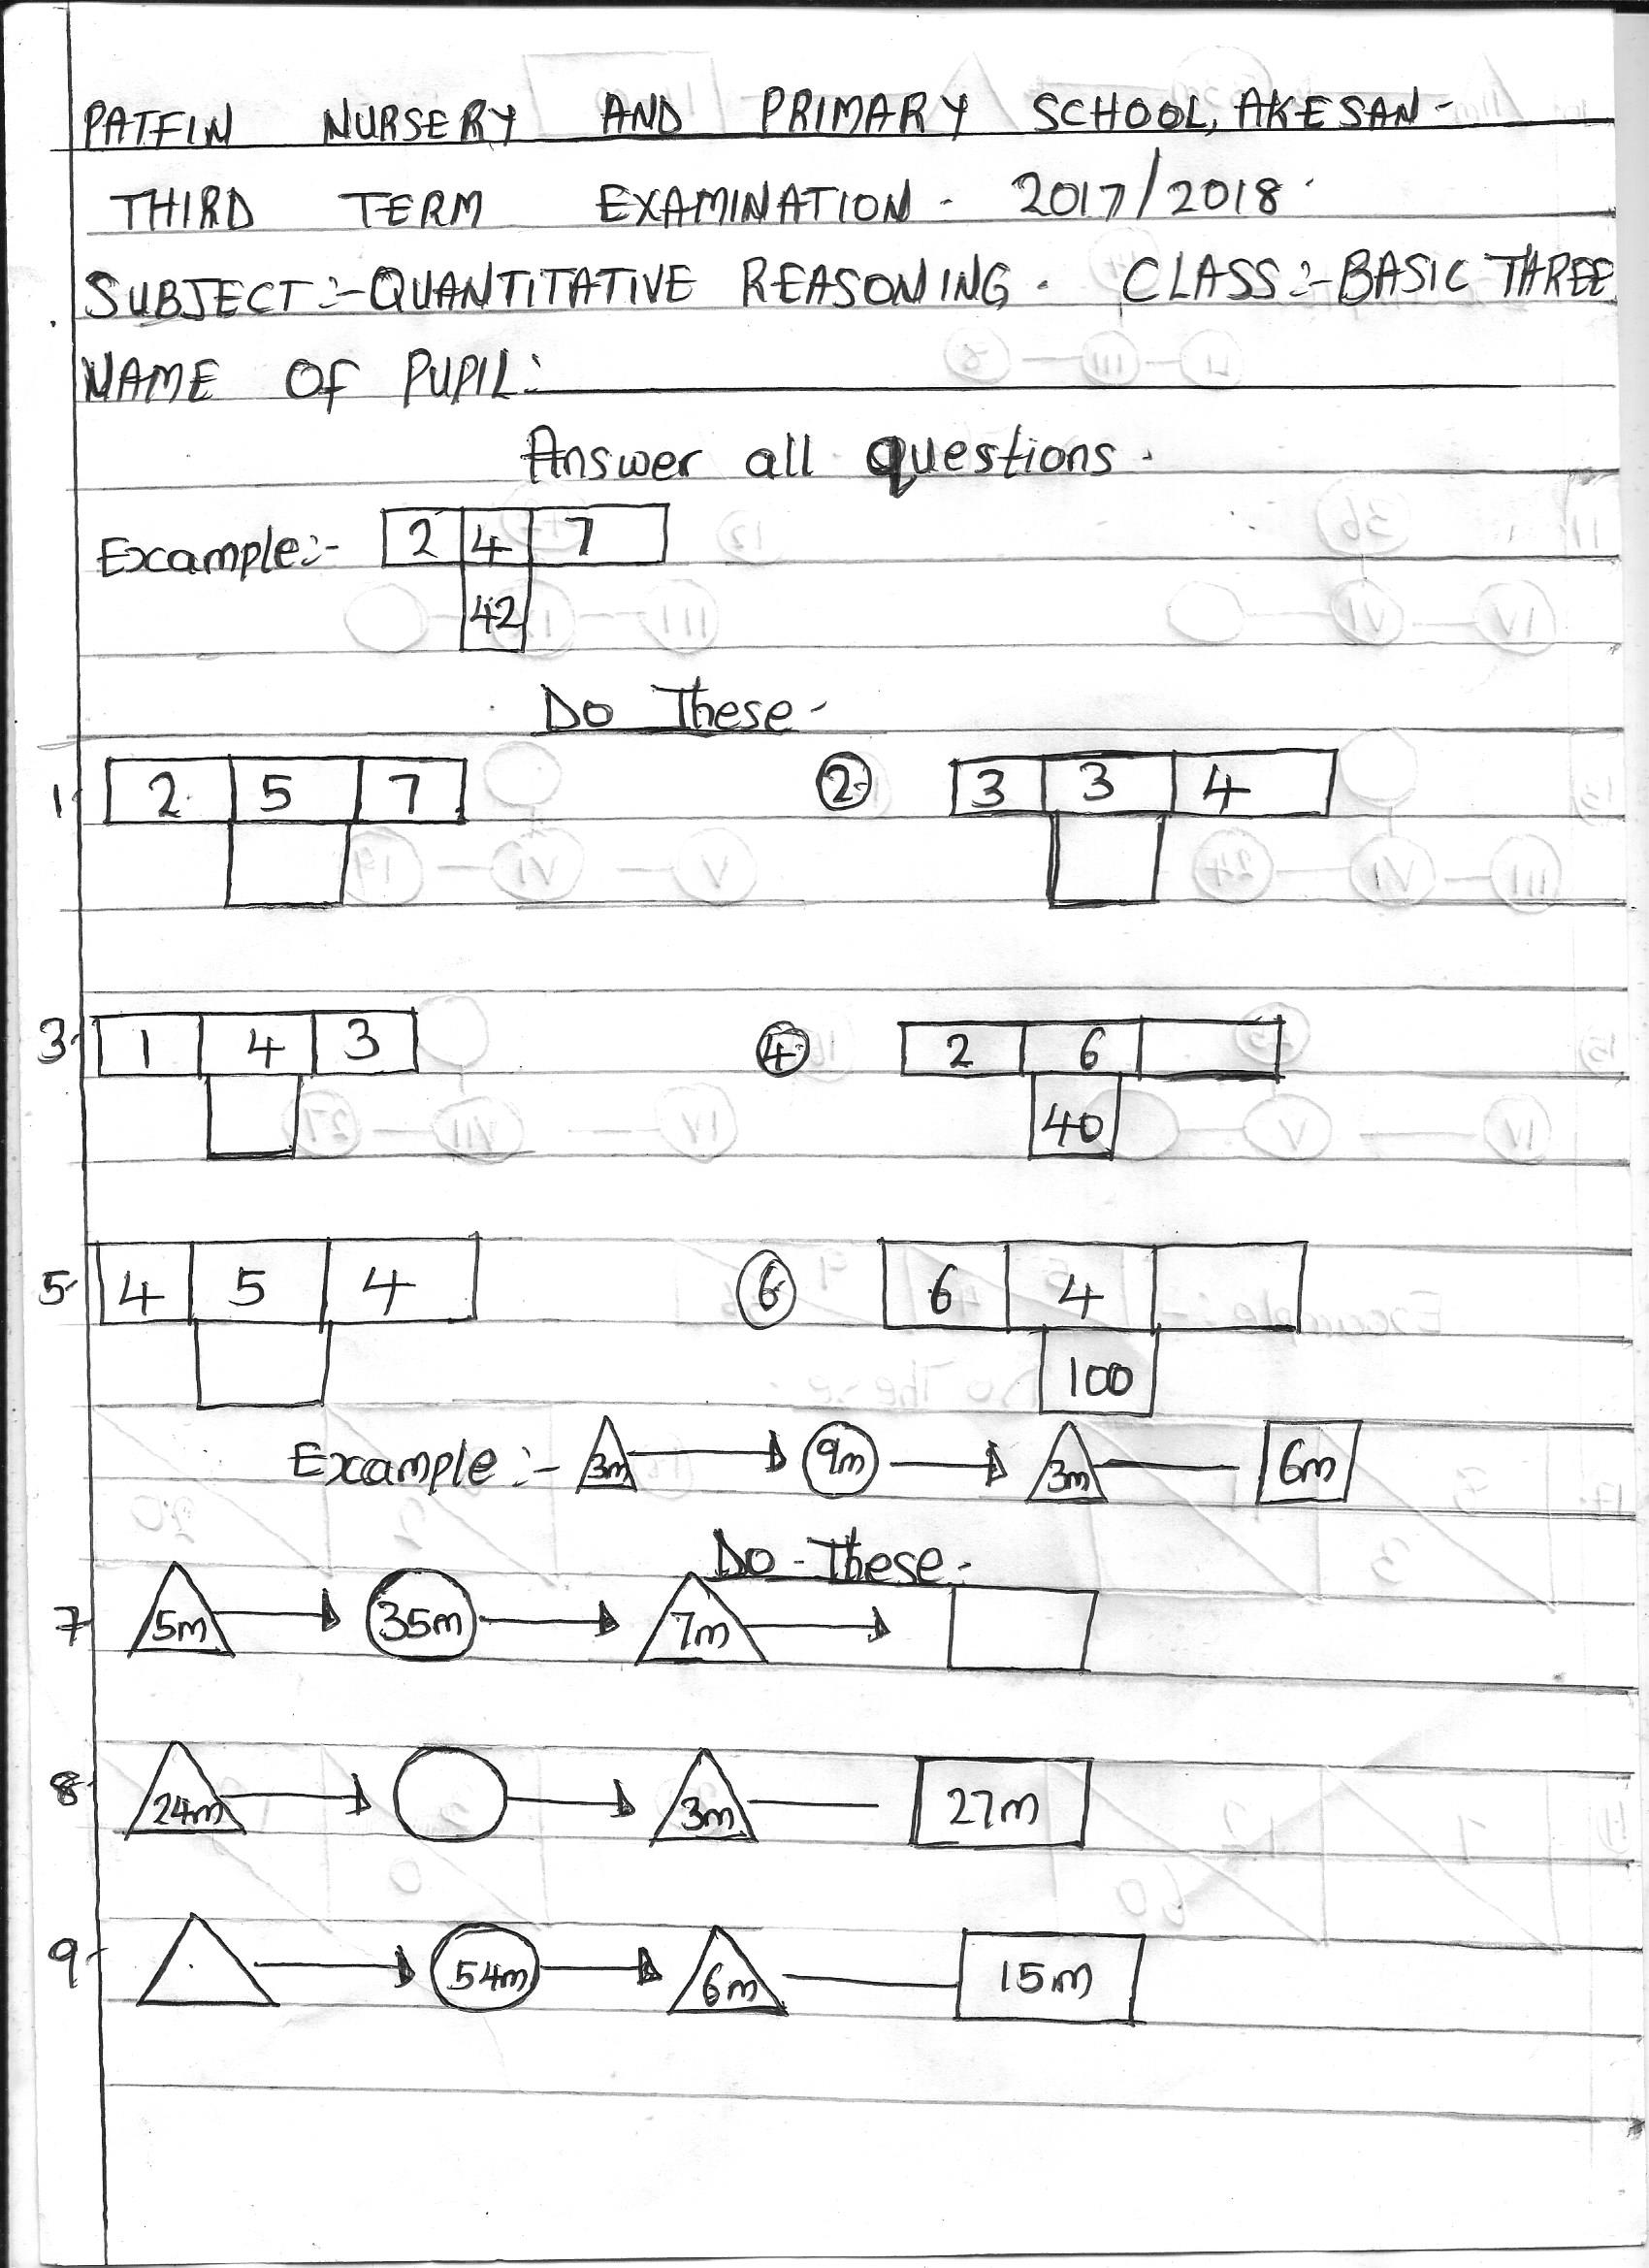 PATFIN NURSERY AND PRIMARY SCHOOL, AKESAN-
THIRD TERM EXAMINATION - 2017/2018.
SUBJECT:-QUANTITATIVE REASONING. CLASS:-BASIC THREE
NAME OF PUPIL:
Answer all questions.
Example:- 2 4 7
42
Do These-
1 2 5 7 2 3 3 4
3 1 4 3 4 2 6
40
5 4 5 4 6 6 4
100
Example:- 3m 9m 3m 6m
Do These-
7 5m 35m 7m
8 24m 3m 27m
9 54m 6m 15m